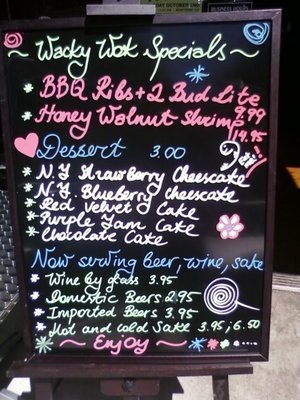 ~ Wacky Wok Specials ~
* BBQ Ribs + 2 Bud Lite
9.99
* Honey Walnut Shrimp
14.95
Dessert 3.00
* N.Y. Strawberry Cheescake
* N.Y. Blueberry Cheescate
* Red Velvet Cake
* Purple Yam Cake
* Chocolate Cake
Now serving beer, wine, sake
* Wine by glass 3.95
* Domestic Beers 2.95
* Imported Beers 3.95
* Hot and cold Sake 3.95, 6.50
~ Enjoy ~